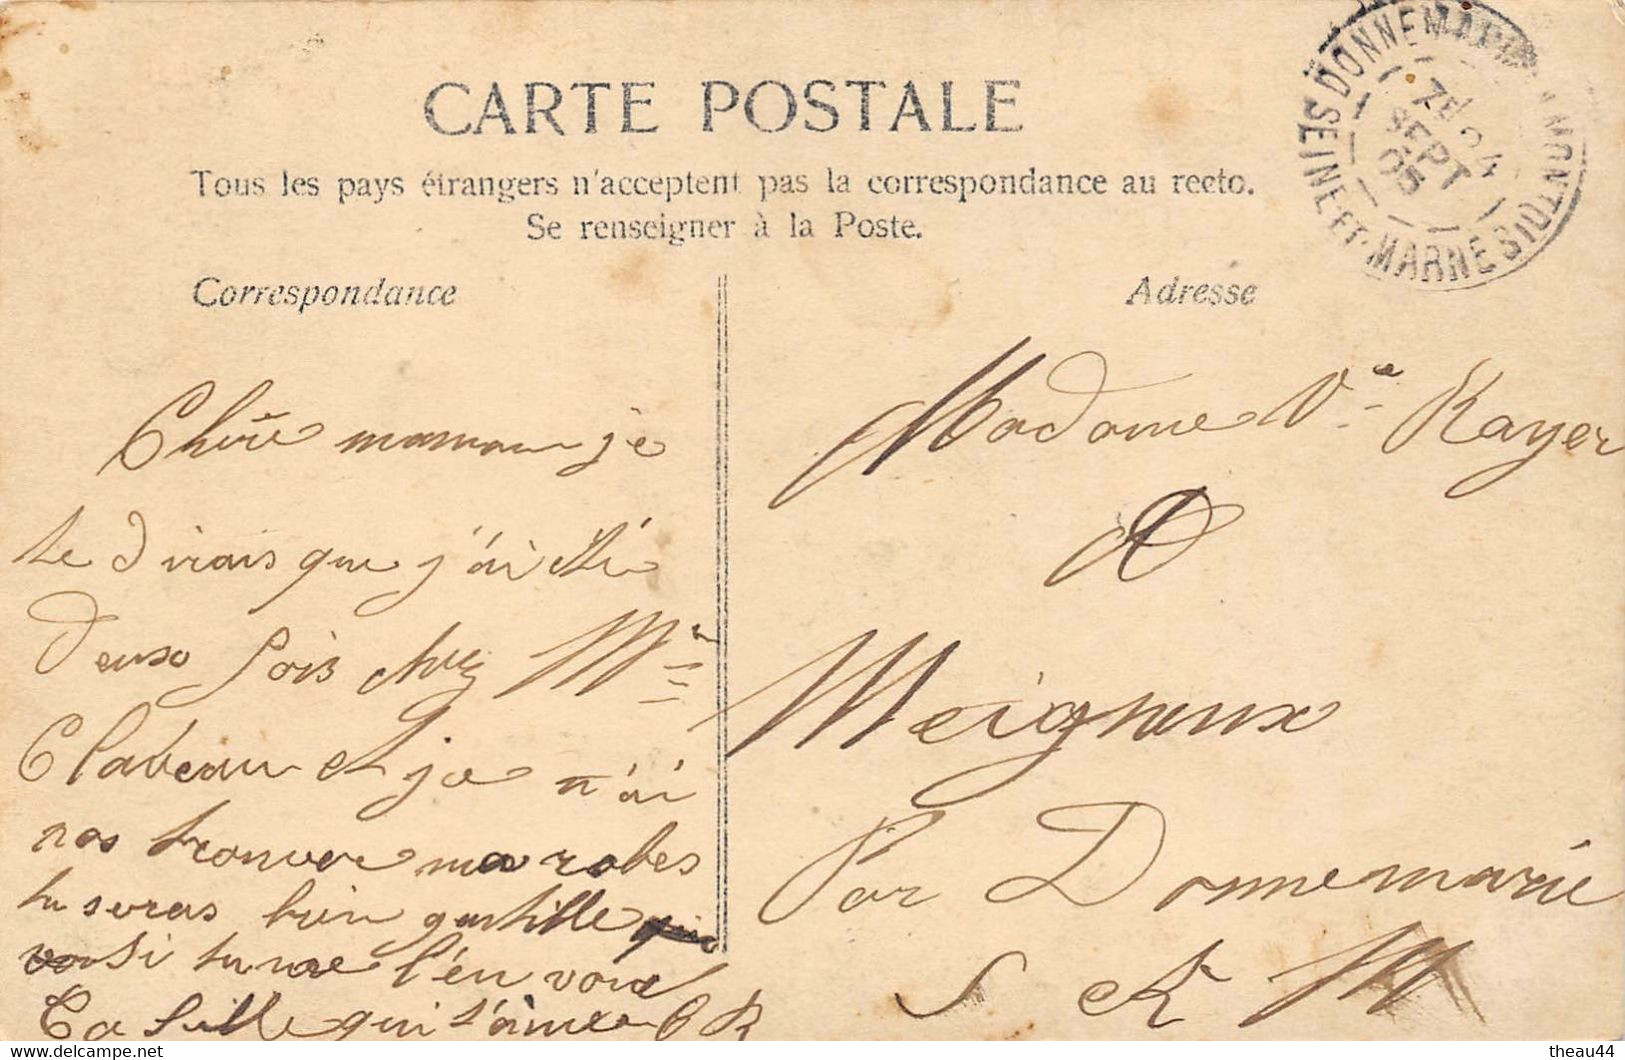 CARTE POSTALE
Tous les pays étrangers n'acceptent pas la correspondance au recto.
Se renseigner à la Poste.
Correspondance
Adresse
DONNEMARIE-EN-MONTOIS
SEINE-ET-MARNE
7E 24
SEPT
05
Chère maman je
te dirais que j'ai été
deux fois chez Mme
Clabeau et je n'ai
pas trouver ma robes
tu seras bien gentille
si tu me l'en voie
Ta fille qui t'aime OR
Madame Ve Rayer
A
Meigneux
Par Donnemarie
S et M
theau44